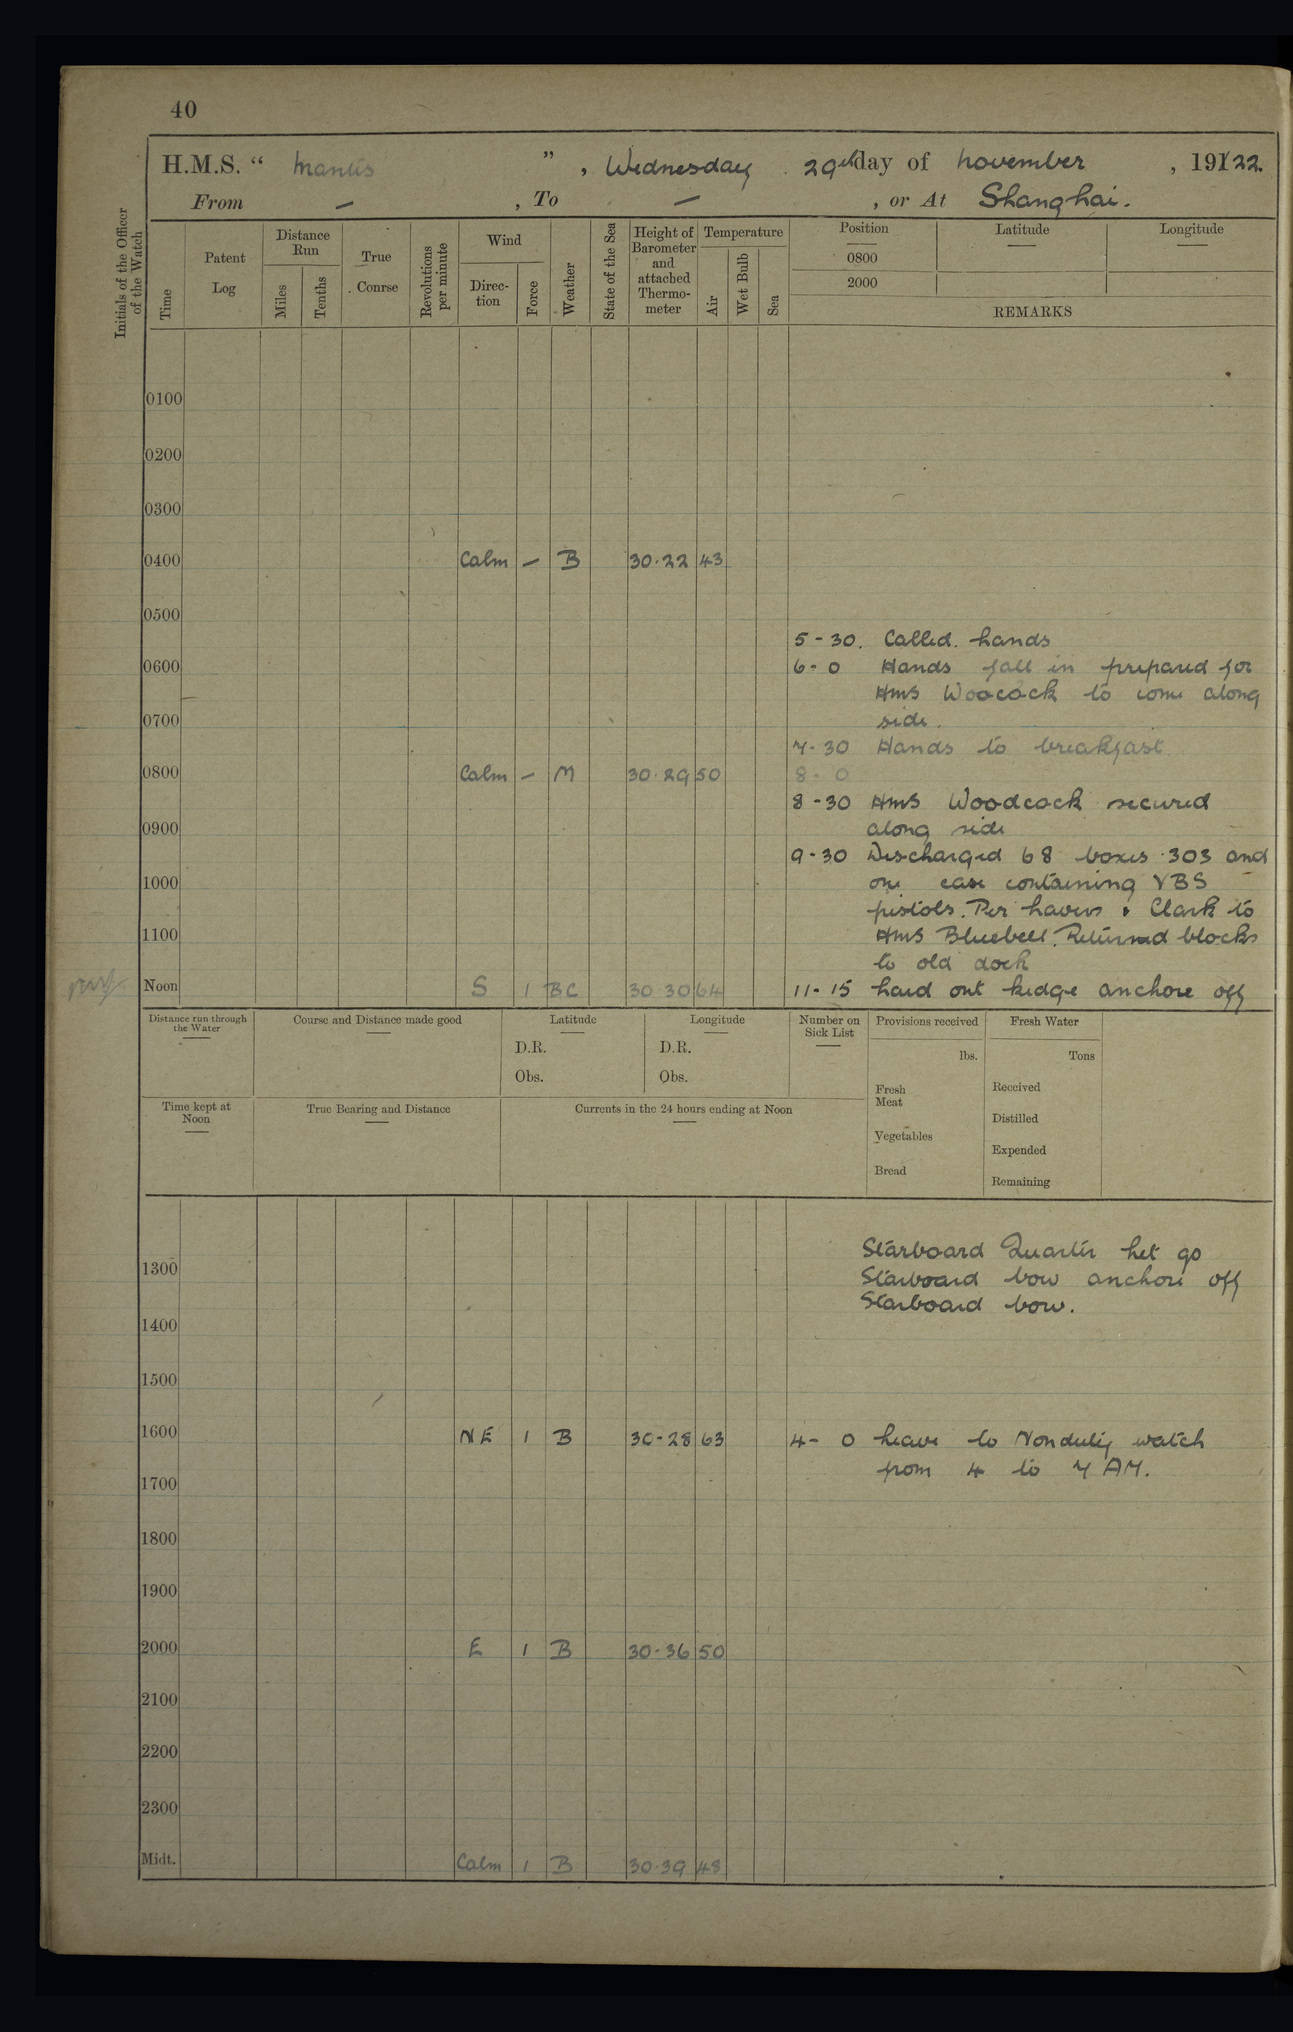 40
H.M.S. " Mantis ", Wednesday 29th day of november, 19122.
From — , To — , or At Shanghai.
Initials of the Officer of the Watch
Time
Patent Log
Distance Run
Miles
Tenths
True Course
Revolutions per minute
Wind
Direction
Force
Weather
State of the Sea
Height of Barometer and attached Thermometer
Temperature
Air
Wet Bulb
Sea
Position
Latitude
Longitude
0800
2000
REMARKS
0100
0200
0300
0400 Calm — B 30.22 43
0500
5-30. Called hands
0600 6-0 Hands fall in prepared for
HMS Woocock to come along
0700 side.
7-30 Hands to breakfast
0800 Calm — M 30.29 50 8-0
8-30 HMS Woodcock secured
0900 along side
9-30 Discharged 68 boxes .303 and
1000 one case containing VBS
pistols. Per havers & Clark to
1100 HMS Bluebell. Returned blocks
to old dock
Noon S 1 BC 30 30 64 11-15 haid out kedge anchore off
Distance run through the Water
Course and Distance made good
Latitude
D.R.
Obs.
Longitude
D.R.
Obs.
Number on Sick List
Provisions received
lbs.
Fresh Meat
Vegetables
Bread
Fresh Water
Tons
Received
Distilled
Expended
Remaining
Time kept at Noon
True Bearing and Distance
Currents in the 24 hours ending at Noon
Starboard Quarter het go
1300 Starboard bow anchore off
Starboard bow.
1400
1500
1600 NE 1 B 30-28 63 4-0 heave to Nonduty watch
from 4 to 7 AM.
1700
1800
1900
2000 E 1 B 30-36 50
2100
2200
2300
Midt. Calm 1 B 30.39 48